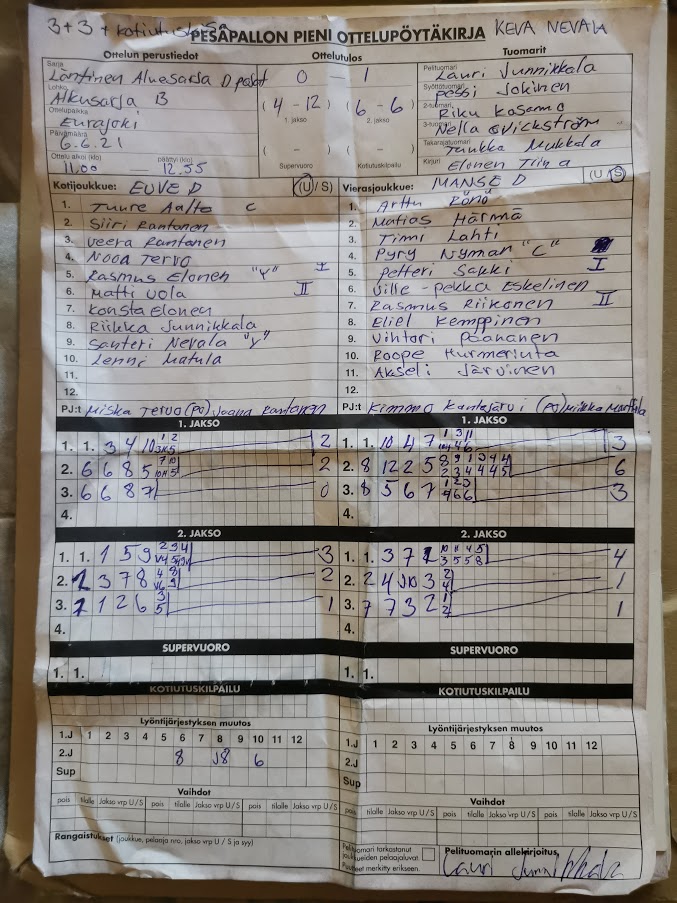 3+3 + kotiutuskisa
PESÄPALLON PIENI OTTELUPÖYTÄKIRJA KEVA NEVALA
Ottelun perustiedot Ottelutulos Tuomarit
Sarja Läntinen Aluesarja D pojat 0 – 1 Pelituomari Lauri Junnikkala
Lohko Alkusarja B Syöttötuomari Jokinen
Ottelupaikka Eurajoki (4 – 12) (6 – 6) 2-tuomari Riku
1. jakso 2. jakso 3-tuomari Nella
Päivämäärä 6.6.21 (–) (–) Takarajatuomari Tuukka Mukkala
Ottelu alkoi (klo) 11.00 päättyi (klo) 12.55 Supervuoro Kotiutuskilpailu Kirjuri Elonen Tiina
Kotijoukkue: EUVE D (U/S) Vierasjoukkue: MANSE D (U/S)
1. Tuure Aalto C 1. Arttu Rönö
2. Siiri Rantanen 2. Matias Härmä
3. Veera Rantanen 3. Timi Lahti
4. Nooa Tervo 4. Pyry Nyman "C"
5. Rasmus Elonen "Y" I 5. Petteri Sakki I
6. Matti Uola II 6. Ville-pekka Eskelinen
7. Konsta Elonen 7. Rasmus Riikonen II
8. Riikka Junnikkala 8. Eliel Kemppinen
9. Santeri Nevala "Y" 9. Vihtori Paananen
10. Lenni Matula 10. Roope Hurmerinta
11. 11. Akseli Järvinen
12. 12.
PJ:t Miska Tervo (PJ) Jaana Rantanen PJ:t Kimmo Kantojärvi (PJ) Miikka
1. JAKSO 1. JAKSO
1. 1. 3 4 10 2 1. 1. 10 4 7 3
2. 6 6 8 5 2 2. 8 12 2 5 6
3. 6 6 8 7 0 3. 8 5 6 7 3
4. 4.
2. JAKSO 2. JAKSO
1. 1 1 5 9 3 1. 1. 3 7 4
2. 3 7 8 2 2. 2 4 3 1
3. 1 2 6 1 3. 7 7 3 2 1
4. 4.
SUPERVUORO SUPERVUORO
1. 1. 1. 1.
KOTIUTUSKILPAILU KOTIUTUSKILPAILU
Lyöntijärjestyksen muutos Lyöntijärjestyksen muutos
1.J 1 2 3 4 5 6 7 8 9 10 11 12 1.J 1 2 3 4 5 6 7 8 9 10 11 12
2.J 8 J8 6 2.J
Sup Sup
Vaihdot Vaihdot
pois tilalle Jakso vrp U/S pois tilalle Jakso vrp U/S pois tilalle Jakso vrp U/S pois tilalle Jakso vrp U/S pois tilalle Jakso vrp U/S pois tilalle Jakso vrp U/S
Rangaistukset (joukkue, pelaaja nro, jakso vrp U / S ja syy) Pelituomari tarkastanut Pelituomarin allekirjoitus
joukkueiden pelaajaluvat
Puutteet merkitty erikseen. Lauri Junnikkala